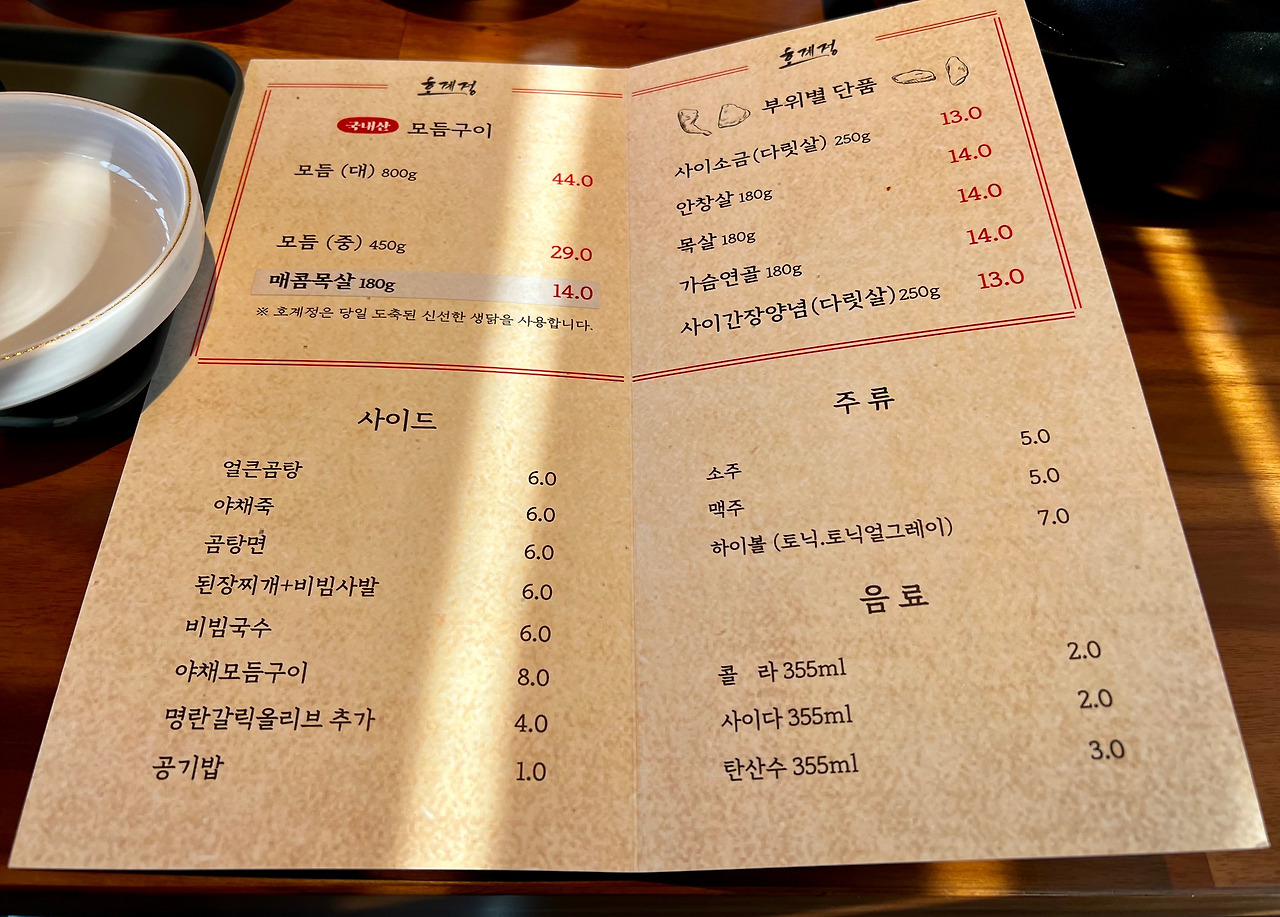 호계정
국내산 모듬구이
모듬 (대) 800g 44.0
모듬 (중) 450g 29.0
매콤목살 180g 14.0
※ 호계정은 당일 도축된 신선한 생닭을 사용합니다.
사이드
얼큰곰탕 6.0
야채죽 6.0
곰탕면 6.0
된장찌개+비빔사발 6.0
비빔국수 6.0
야채모듬구이 8.0
명란갈릭올리브 추가 4.0
공기밥 1.0
호계정
부위별 단품
사이소금(다릿살) 250g 13.0
안창살 180g 14.0
목살 180g 14.0
가슴연골 180g 14.0
사이간장양념(다릿살) 250g 13.0
주류
소주 5.0
맥주 5.0
하이볼 (토닉.토닉얼그레이) 7.0
음료
콜 라 355ml 2.0
사이다 355ml 2.0
탄산수 355ml 3.0